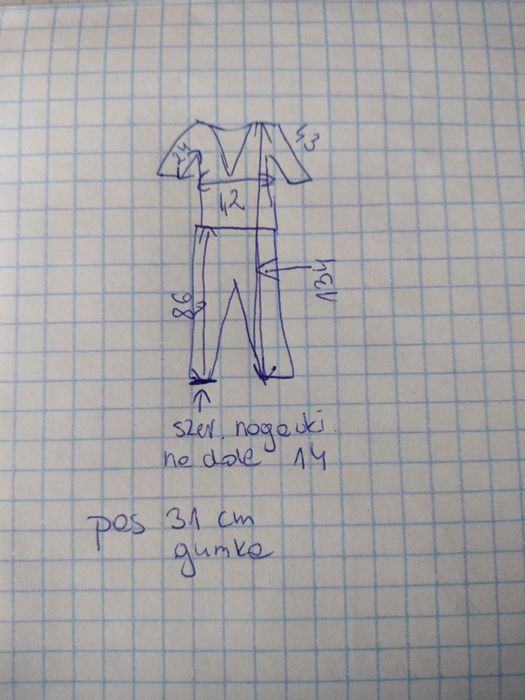 43
24
42
86
134
szer. nogawki
na dole 14
pas 31 cm
gumka